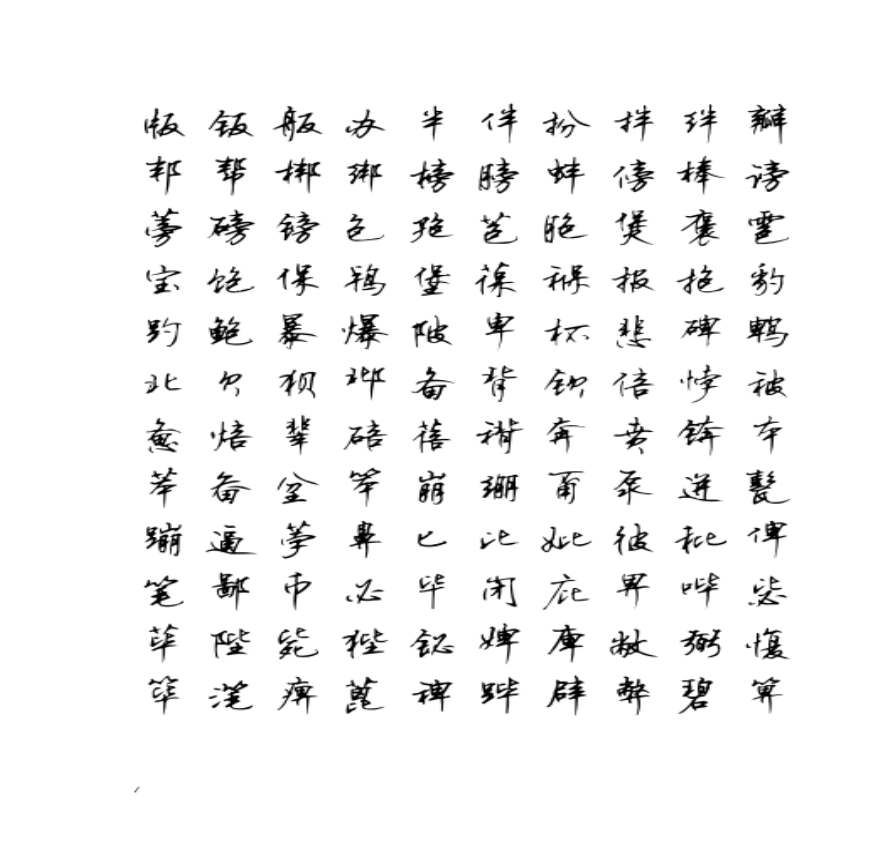 版 钣 舨 办 半 伴 扮 拌 绊 瓣
邦 帮 梆 绑 榜 膀 蚌 傍 棒 谤
蒡 磅 镑 包 孢 苞 胞 煲 褒 雹
宝 饱 保 鸨 堡 葆 褓 报 抱 豹
趵 鲍 暴 爆 陂 卑 杯 悲 碑 鹎
北 贝 狈 邶 备 背 钡 倍 悖 被
惫 焙 辈 碚 蓓 褙 奔 贲 锛 本
苯 备 坌 笨 崩 绷 甭 泵 迸 甏
蹦 逼 荸 鼻 匕 比 妣 彼 秕 俾
笔 鄙 币 必 毕 闭 庇 畀 哔 毖
荜 陛 毙 狴 铋 婢 庳 敝 弼 愎
筚 滗 痹 蓖 裨 跸 辟 弊 碧 箅